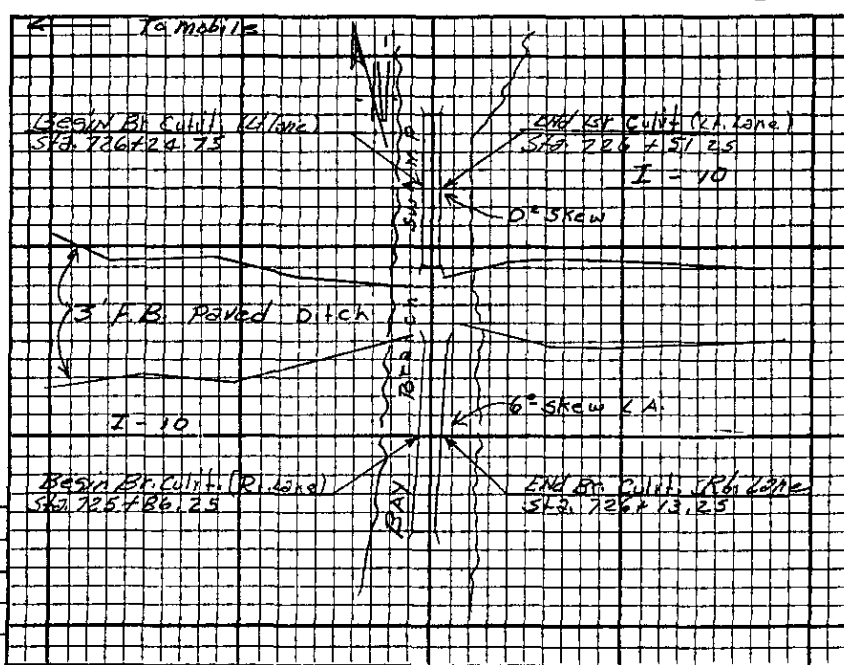 To Mobile
Begin Br. Culvt. (Lt. lane)
Sta. 726+24.75
End Br. Culvt. (Lt. Lane)
Sta. 726 + 51.25
I - 10
0° Skew
3' F.B. Paved Ditch
Bay Branch Swamp
6° Skew L.A.
I - 10
Begin Br. Culvt. (Rt. Lane)
Sta. 725+86.25
End Br. Culvt. (Rt. Lane)
Sta. 726+13.25